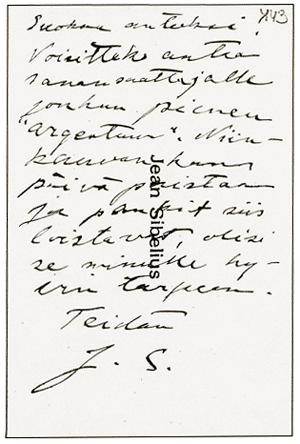 443
Suokaa anteeksi!
Voisitteko antaa
sanansaattajalle
jonkun pienen
"argentum". Niin-
kauvan kun
päivä paistaa
ja pankit siis
loistavat, olisi
se minulle hy-
vin tarpeen.
Teidän
J. S.
Jean Sibelius